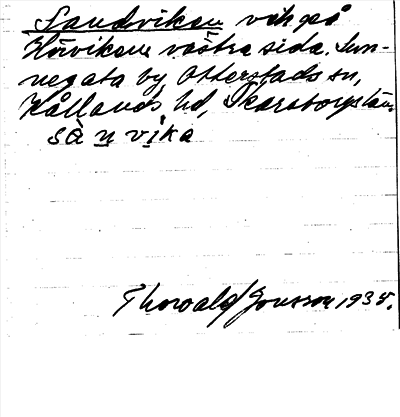 Sandviken vik på
Hörvikens västra sida. Sun-
negata by, Otterstads sn,
Kållands hd, Skaraborgs län.
sà n vika
Thorvald Jonsson 1935.